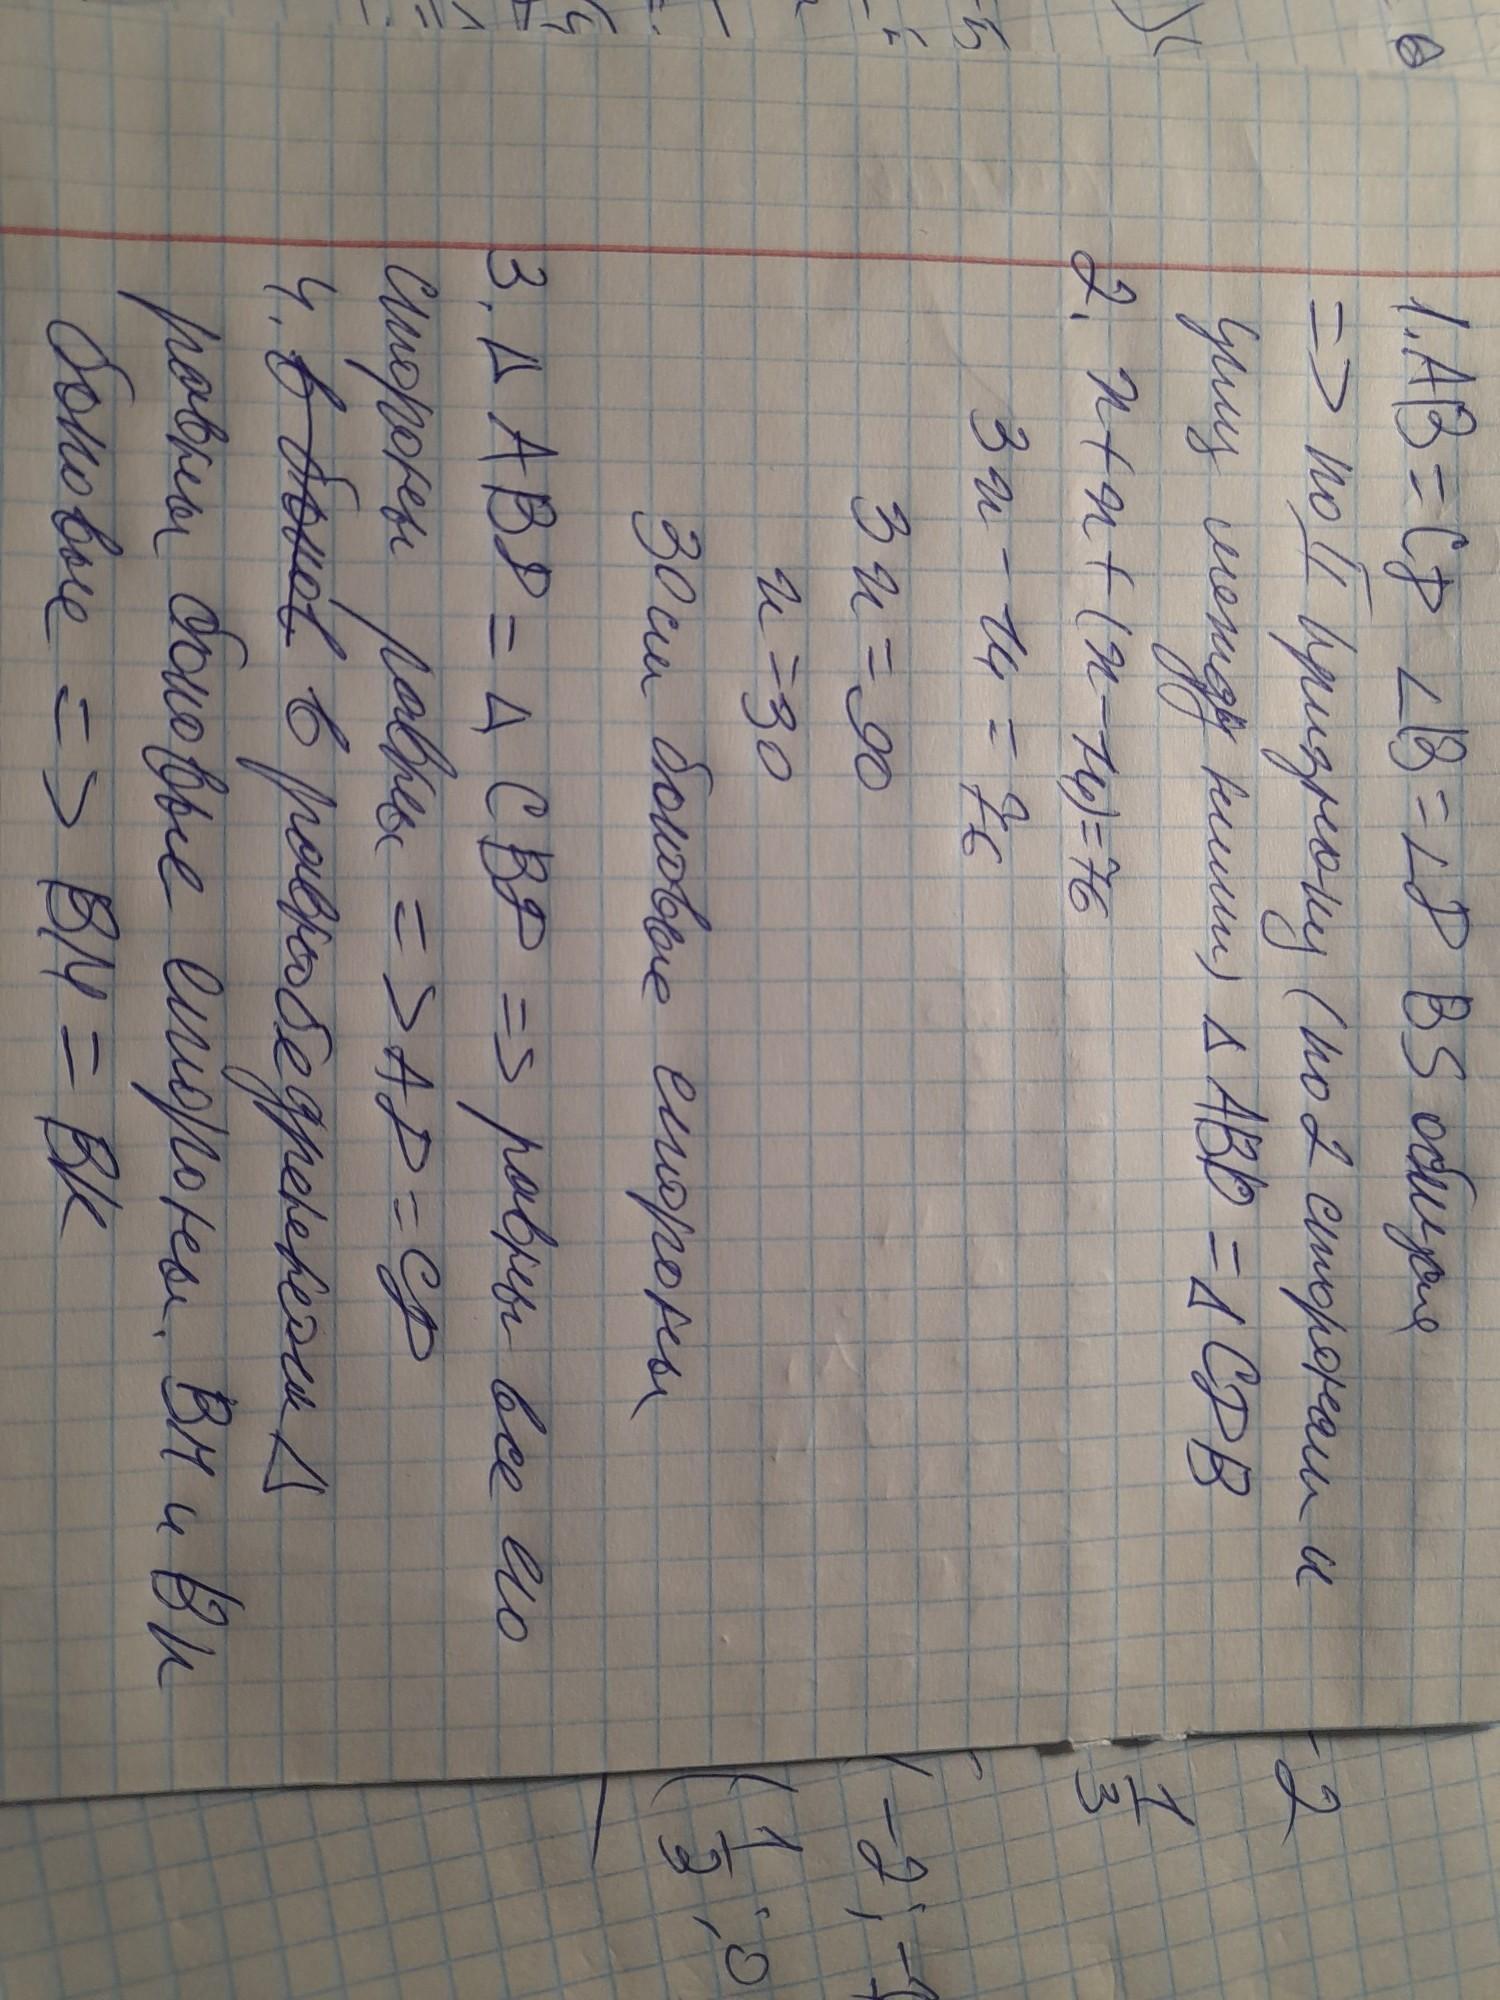 1. AB = CD ∠B = ∠D BS общая
=> по II признаку (по 2 сторонам и
углу между ними) Δ ABD = Δ CDB
2. x + x + (x - 14) = 76
3x - 14 = 76
3x = 90
x = 30
30 см боковые стороны
3. Δ ABD = Δ CBD => равны все
стороны равны => AD = CD
4. в равнобедренном Δ
равны боковые стороны. BM и BK
боковые => BM = BK
-2
1/3
-2;
(1/3; 0